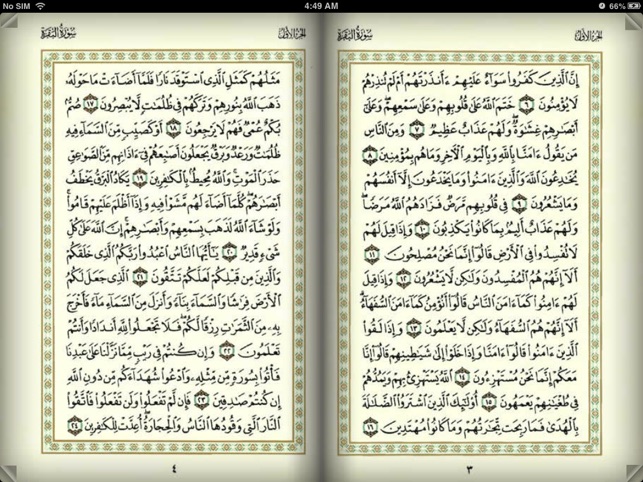 No SIM 4:49 AM 66%
سُورَةُ البَقَرَةِ الجُزْءُ الأَوَّلُ
إِنَّ ٱلَّذِينَ كَفَرُوا۟ سَوَآءٌ عَلَيْهِمْ ءَأَنذَرْتَهُمْ أَمْ لَمْ تُنذِرْهُمْ
لَا يُؤْمِنُونَ ٦ خَتَمَ ٱللَّهُ عَلَىٰ قُلُوبِهِمْ وَعَلَىٰ سَمْعِهِمْ ۖ وَعَلَىٰٓ
أَبْصَٰرِهِمْ غِشَٰوَةٌ ۖ وَلَهُمْ عَذَابٌ عَظِيمٌ ٧ وَمِنَ ٱلنَّاسِ
مَن يَقُولُ ءَامَنَّا بِٱللَّهِ وَبِٱلْيَوْمِ ٱلْءَاخِرِ وَمَا هُم بِمُؤْمِنِينَ ٨
يُخَٰدِعُونَ ٱللَّهَ وَٱلَّذِينَ ءَامَنُوا۟ وَمَا يَخْدَعُونَ إِلَّآ أَنفُسَهُمْ
وَمَا يَشْعُرُونَ ٩ فِى قُلُوبِهِم مَّرَضٌ فَزَادَهُمُ ٱللَّهُ مَرَضًا ۖ
وَلَهُمْ عَذَابٌ أَلِيمٌۢ بِمَا كَانُوا۟ يَكْذِبُونَ ١٠ وَإِذَا قِيلَ لَهُمْ
لَا تُفْسِدُوا۟ فِى ٱلْأَرْضِ قَالُوٓا۟ إِنَّمَا نَحْنُ مُصْلِحُونَ ١١
أَلَآ إِنَّهُمْ هُمُ ٱلْمُفْسِدُونَ وَلَٰكِن لَّا يَشْعُرُونَ ١٢ وَإِذَا قِيلَ
لَهُمْ ءَامِنُوا۟ كَمَآ ءَامَنَ ٱلنَّاسُ قَالُوٓا۟ أَنُؤْمِنُ كَمَآ ءَامَنَ ٱلسُّفَهَآءُ ۗ
أَلَآ إِنَّهُمْ هُمُ ٱلسُّفَهَآءُ وَلَٰكِن لَّا يَعْلَمُونَ ١٣ وَإِذَا لَقُوا۟
ٱلَّذِينَ ءَامَنُوا۟ قَالُوٓا۟ ءَامَنَّا وَإِذَا خَلَوْا۟ إِلَىٰ شَيَٰطِينِهِمْ قَالُوٓا۟ إِنَّا
مَعَكُمْ إِنَّمَا نَحْنُ مُسْتَهْزِءُونَ ١٤ ٱللَّهُ يَسْتَهْزِئُ بِهِمْ وَيَمُدُّهُمْ
فِى طُغْيَٰنِهِمْ يَعْمَهُونَ ١٥ أُو۟لَٰٓئِكَ ٱلَّذِينَ ٱشْتَرَوُا۟ ٱلضَّلَٰلَةَ
بِٱلْهُدَىٰ فَمَا رَبِحَت تِّجَٰرَتُهُمْ وَمَا كَانُوا۟ مُهْتَدِينَ ١٦
٣
سُورَةُ البَقَرَةِ الجُزْءُ الأَوَّلُ
مَثَلُهُمْ كَمَثَلِ ٱلَّذِى ٱسْتَوْقَدَ نَارًا فَلَمَّآ أَضَآءَتْ مَا حَوْلَهُۥ
ذَهَبَ ٱللَّهُ بِنُورِهِمْ وَتَرَكَهُمْ فِى ظُلُمَٰتٍ لَّا يُبْصِرُونَ ١٧ صُمٌّۢ
بُكْمٌ عُمْىٌ فَهُمْ لَا يَرْجِعُونَ ١٨ أَوْ كَصَيِّبٍ مِّنَ ٱلسَّمَآءِ فِيهِ
ظُلُمَٰتٌ وَرَعْدٌ وَبَرْقٌ يَجْعَلُونَ أَصَٰبِعَهُمْ فِىٓ ءَاذَانِهِم مِّنَ ٱلصَّوَٰعِقِ
حَذَرَ ٱلْمَوْتِ ۚ وَٱللَّهُ مُحِيطٌۢ بِٱلْكَٰفِرِينَ ١٩ يَكَادُ ٱلْبَرْقُ يَخْطَفُ
أَبْصَٰرَهُمْ ۖ كُلَّمَآ أَضَآءَ لَهُم مَّشَوْا۟ فِيهِ وَإِذَآ أَظْلَمَ عَلَيْهِمْ قَامُوا۟ ۚ
وَلَوْ شَآءَ ٱللَّهُ لَذَهَبَ بِسَمْعِهِمْ وَأَبْصَٰرِهِمْ ۚ إِنَّ ٱللَّهَ عَلَىٰ كُلِّ
شَىْءٍ قَدِيرٌ ٢٠ يَٰٓأَيُّهَا ٱلنَّاسُ ٱعْبُدُوا۟ رَبَّكُمُ ٱلَّذِى خَلَقَكُمْ
وَٱلَّذِينَ مِن قَبْلِكُمْ لَعَلَّكُمْ تَتَّقُونَ ٢١ ٱلَّذِى جَعَلَ لَكُمُ
ٱلْأَرْضَ فِرَٰشًا وَٱلسَّمَآءَ بِنَآءً وَأَنزَلَ مِنَ ٱلسَّمَآءِ مَآءً فَأَخْرَجَ
بِهِۦ مِنَ ٱلثَّمَرَٰتِ رِزْقًا لَّكُمْ ۖ فَلَا تَجْعَلُوا۟ لِلَّهِ أَندَادًا وَأَنتُمْ
تَعْلَمُونَ ٢٢ وَإِن كُنتُمْ فِى رَيْبٍ مِّمَّا نَزَّلْنَا عَلَىٰ عَبْدِنَا
فَأْتُوا۟ بِسُورَةٍ مِّن مِّثْلِهِۦ وَٱدْعُوا۟ شُهَدَآءَكُم مِّن دُونِ ٱللَّهِ
إِن كُنتُمْ صَٰدِقِينَ ٢٣ فَإِن لَّمْ تَفْعَلُوا۟ وَلَن تَفْعَلُوا۟ فَٱتَّقُوا۟
ٱلنَّارَ ٱلَّتِى وَقُودُهَا ٱلنَّاسُ وَٱلْحِجَارَةُ ۖ أُعِدَّتْ لِلْكَٰفِرِينَ ٢٤
٤